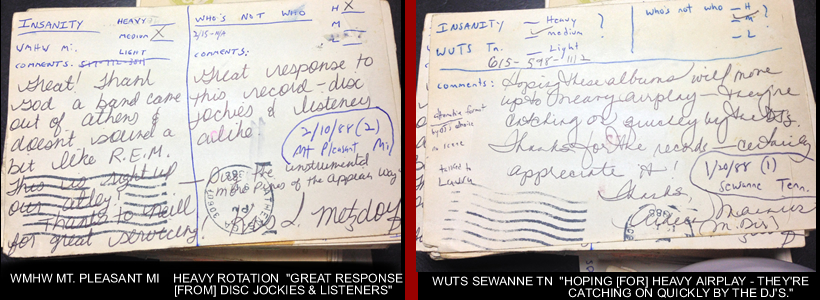 INSANITY
HEAVY
MEDIUM X
LIGHT
WMHW Mi.
COMMENTS:
Great! Thank
God a band came
out of athens &
doesn't sound a
bit like R.E.M.
This is right up
our alley!
Thanks to
for great servicing.
WHO'S NOT WHO
H X
M
L
2/15-N/A
COMMENTS:
Great response to
this record-disc
jockies & listeners
alike
2/10/88 (2)
Mt Pleasant Mi
instrumental
pipes of the
L. Metzdorf
INSANITY
Heavy
medium
Light
WUTS Tn.
615-598-1112
who's not who
H
M
L
?
comments: Hoping these albums will move
up to heavy airplay - they're
catching on quickly by the DJs.
Thanks for the records - certainly
appreciate it!
Thanks,
1/20/88 (1)
Sewanne Tenn.
talked to
WMHW MT. PLEASANT MI HEAVY ROTATION "GREAT RESPONSE
[FROM] DISC JOCKIES & LISTENERS"
WUTS SEWANNE TN "HOPING [FOR] HEAVY AIRPLAY - THEY'RE
CATCHING ON QUICKLY BY THE DJ'S."